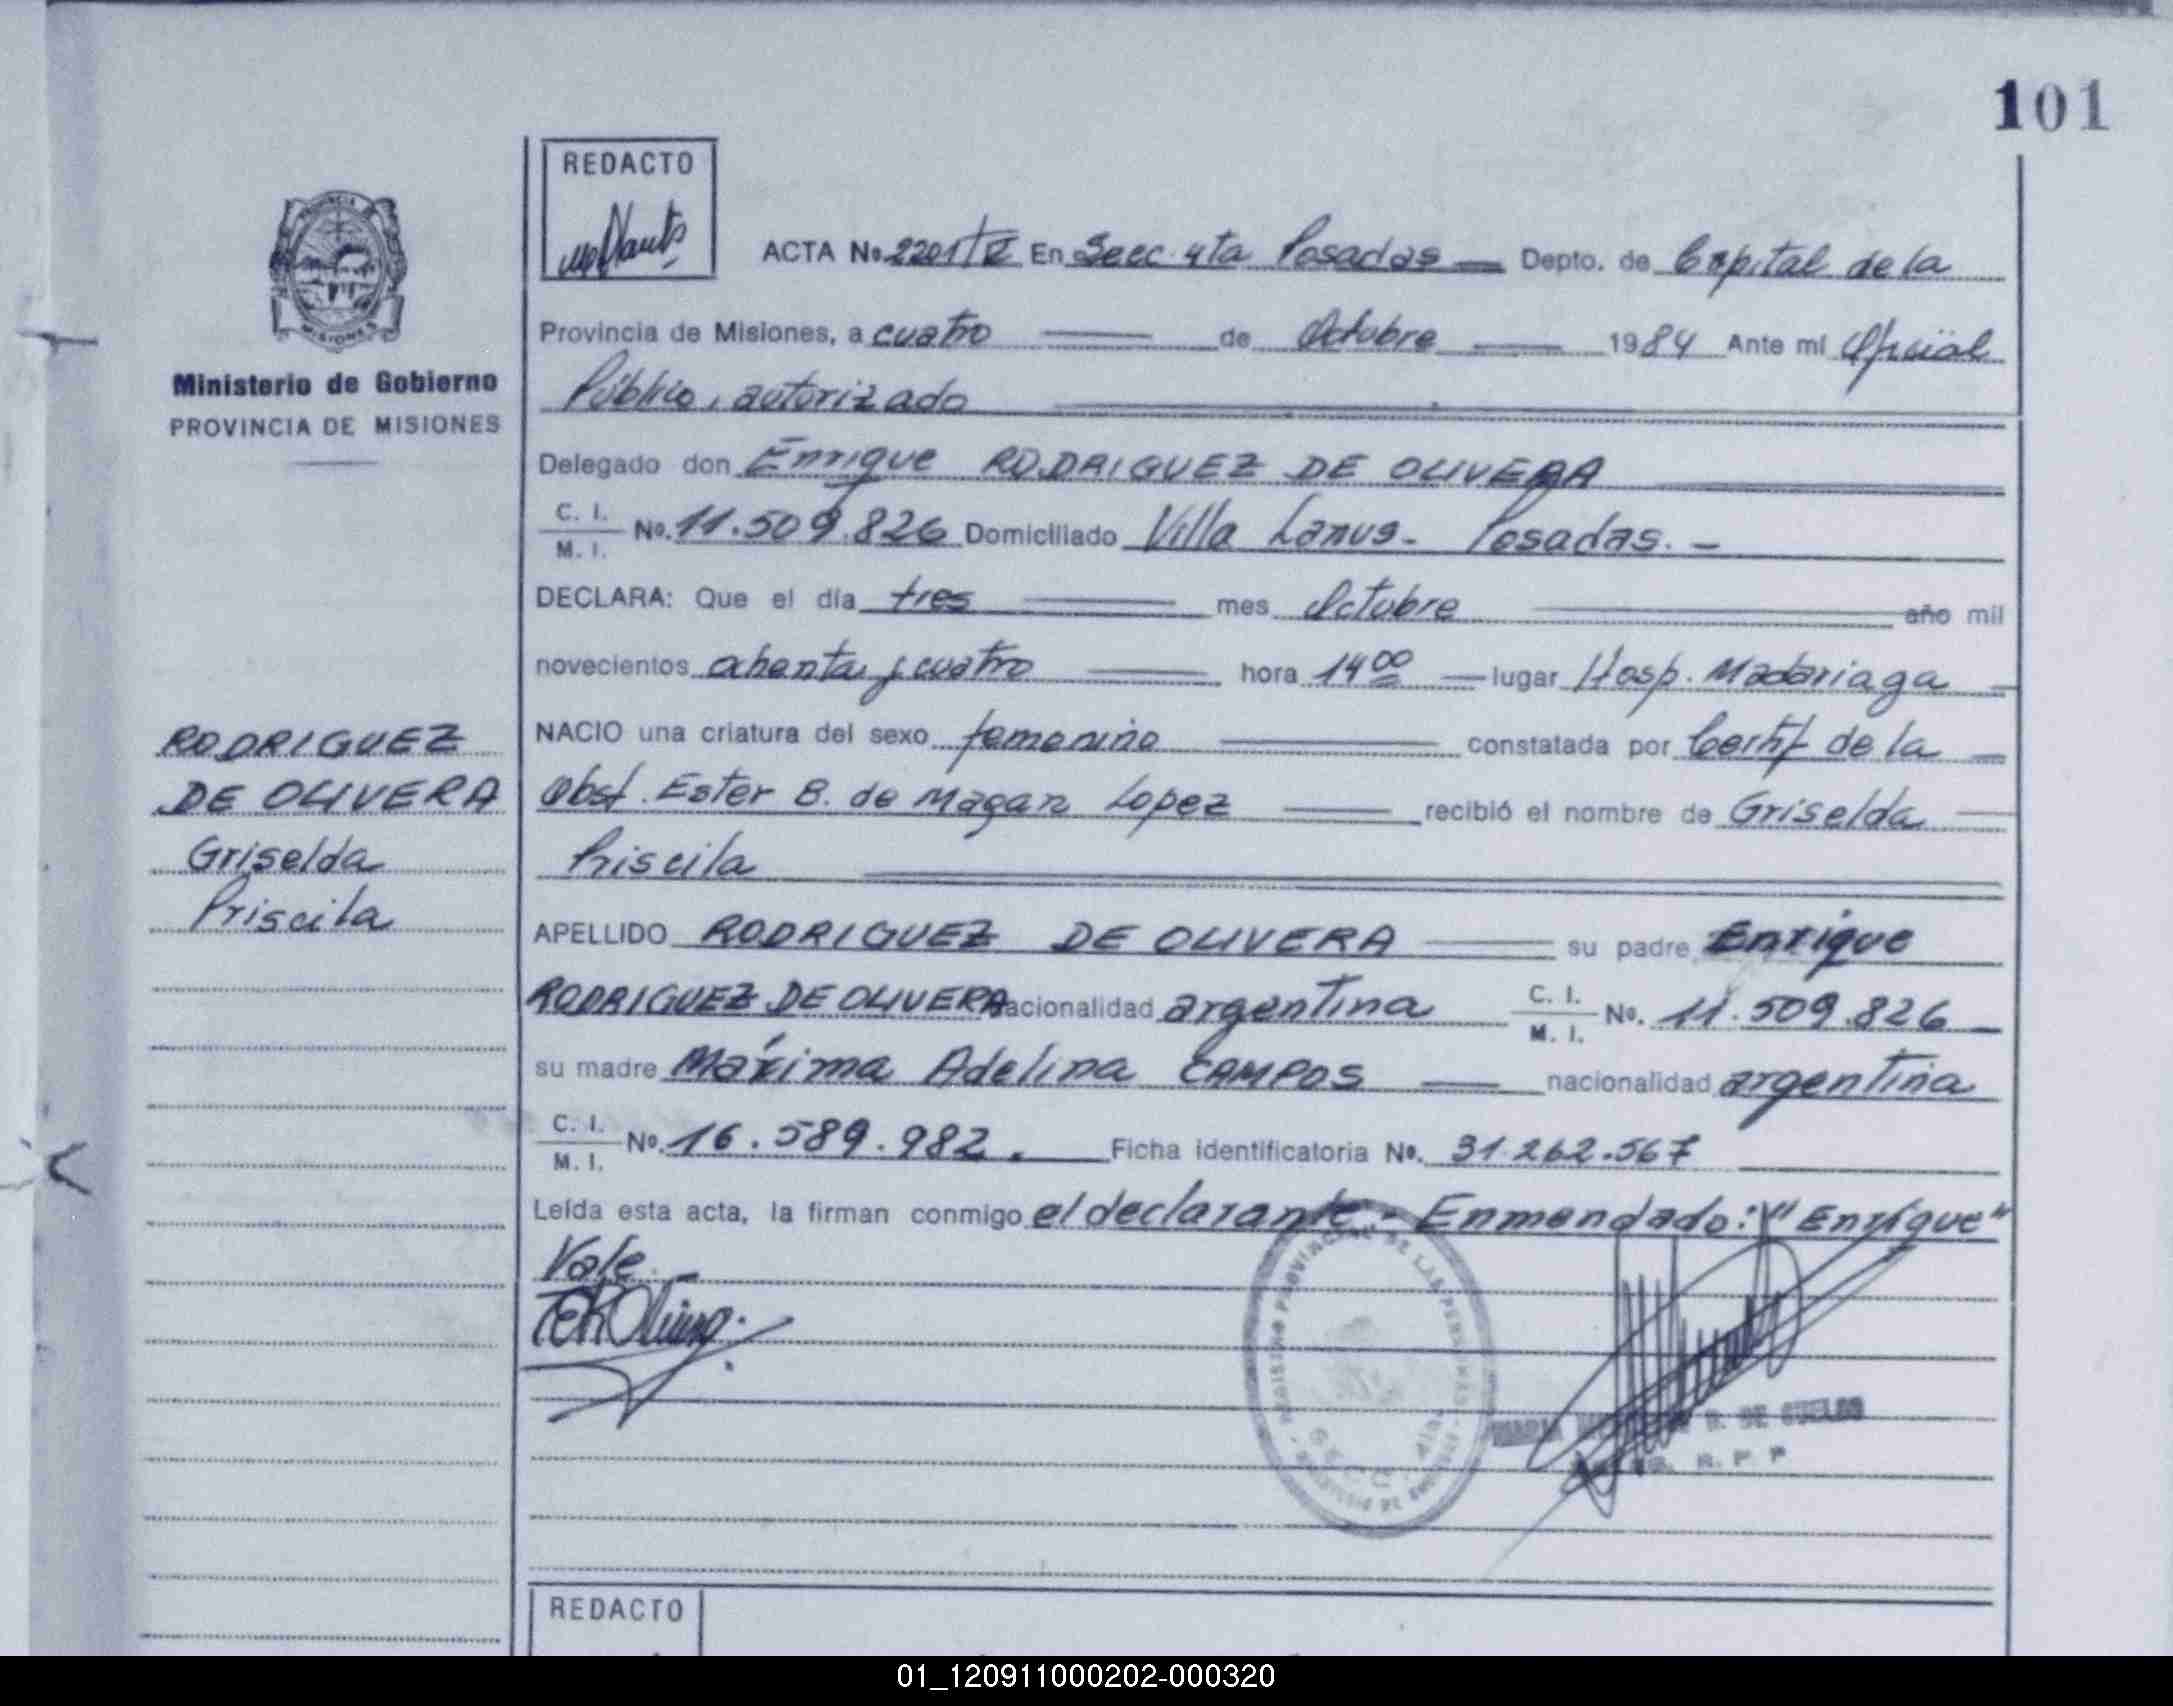 101
REDACTO
ACTA No. 2201/V En Secc. 4ta Posadas Depto. de Capital de la
Provincia de Misiones, a cuatro de Octubre 1984 Ante mí Oficial
Público, autorizado
Ministerio de Gobierno
PROVINCIA DE MISIONES
Delegado don Enrique RODRIGUEZ DE OLIVERA
C. I. / M. I. No. 11.509.826 Domiciliado Villa Lanus - Posadas. -
DECLARA: Que el día tres mes Octubre año mil
novecientos ochenta y cuatro hora 14 00 lugar Hosp. Madariaga
NACIO una criatura del sexo femenino constatada por Certif de la
Obst. Ester B. de Magan Lopez recibió el nombre de Griselda
Priscila
RODRIGUEZ
DE OLIVERA
Griselda
Priscila
APELLIDO RODRIGUEZ DE OLIVERA su padre Enrique
RODRIGUEZ DE OLIVERA nacionalidad argentina C. I. / M. I. No. 11.509.826
su madre Máxima Adelina CAMPOS nacionalidad argentina
C. I. / M. I. No. 16.589.982. Ficha identificatoria No. 31.262.567
Leída esta acta, la firman conmigo el declarante - Enmendado: "Enrique"
Vale. -
DE LAS PERSONAS
DE CUELHO
R. P. P
REDACTO
01_120911000202-000320